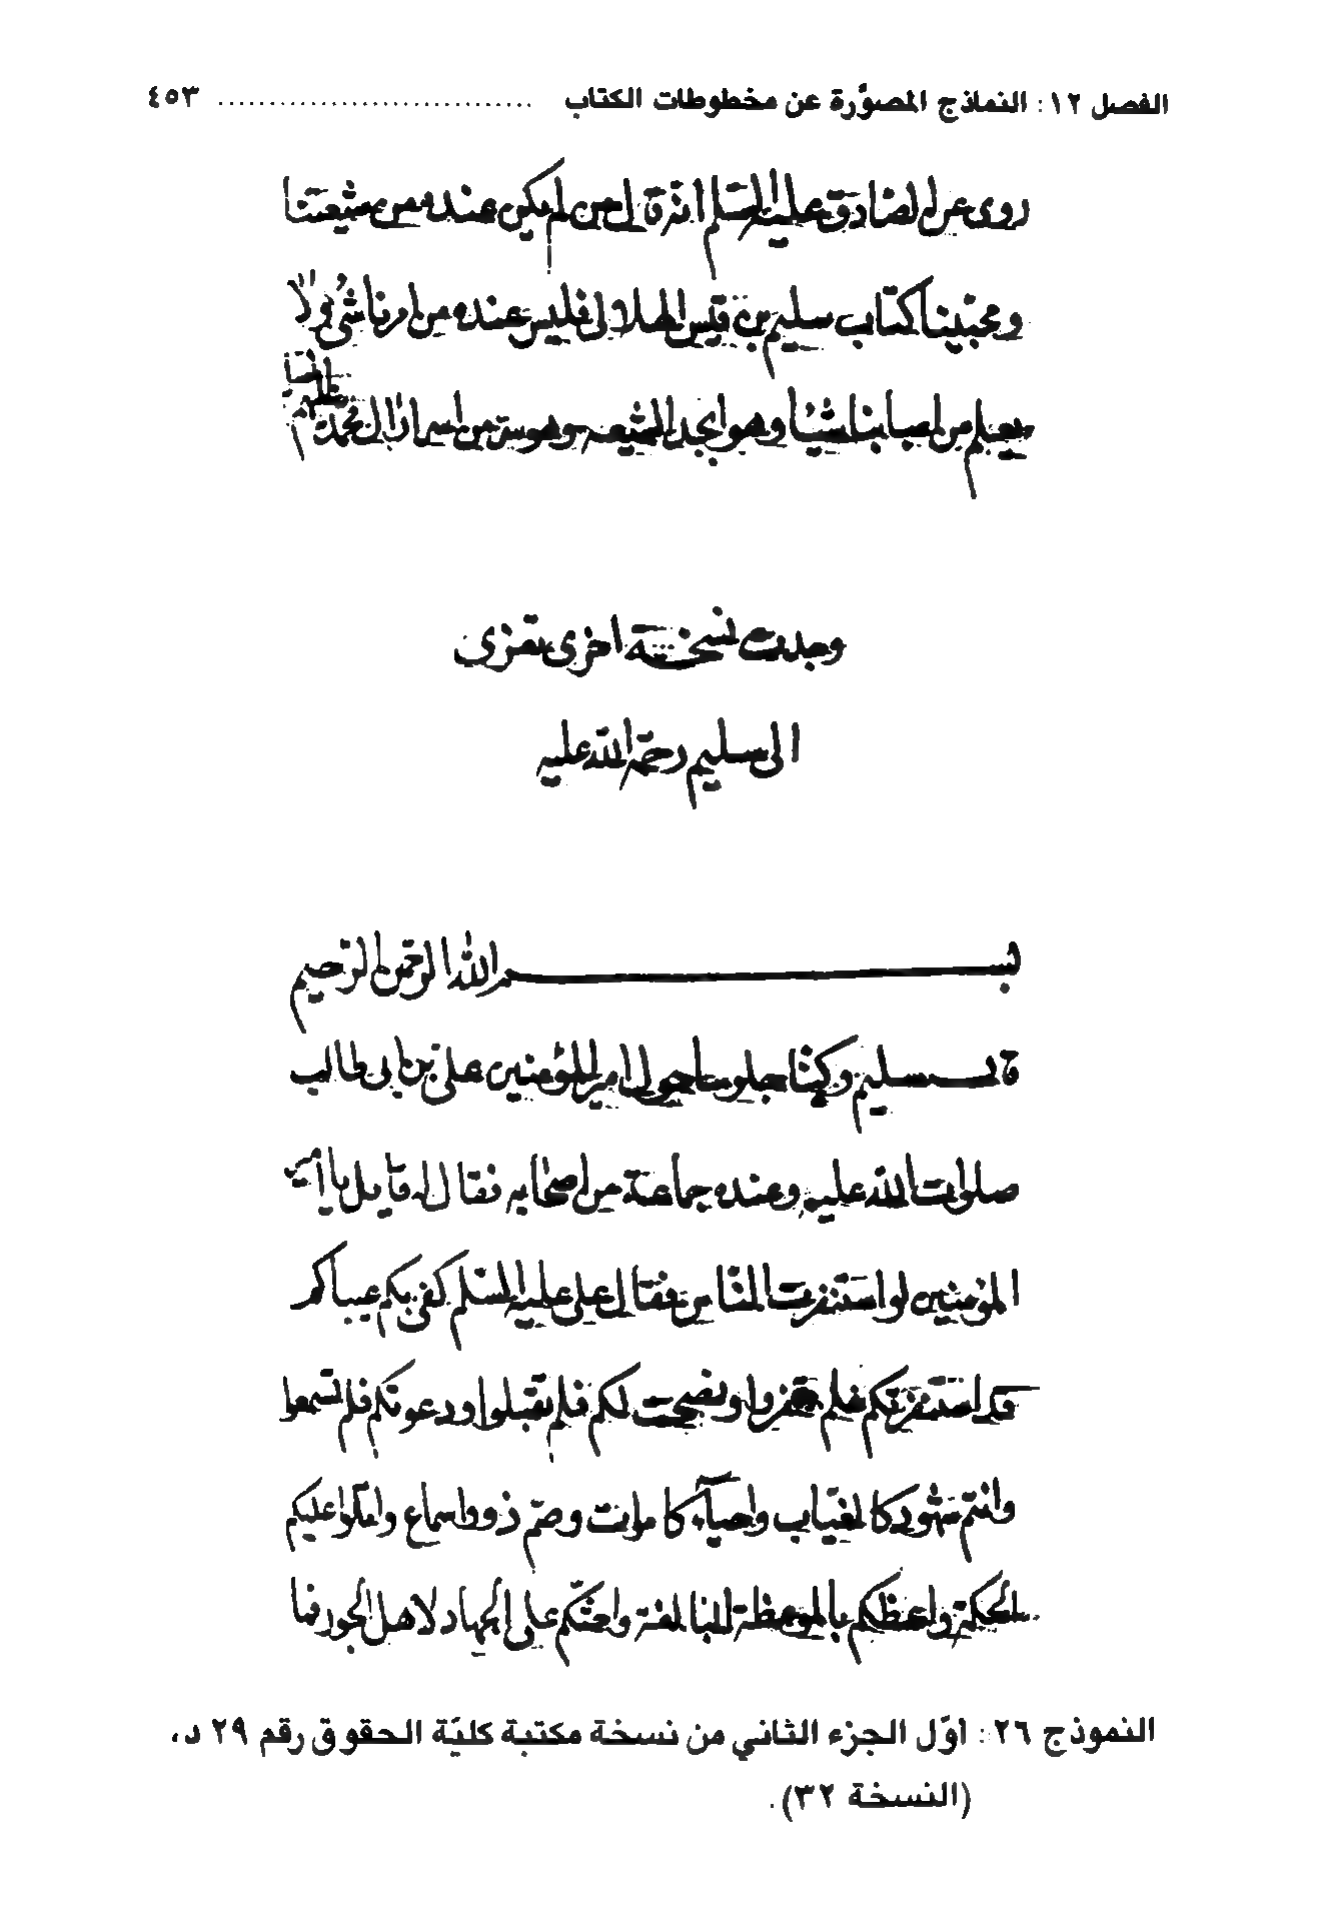 الفصل ١٢: النماذج المصوَّرة عن مخطوطات الكتاب .............................. ٤٥٣
روى عن الصادق عليه السلم انه قال من لم يكن عنده من شيعتنا
ومحبينا كتاب سليم بن قيس الهلالى فليس عنده من امرنا شئ ولا
يعلم من اسبابنا شيئا وهو ابجد الشيعه وهو سر من اسرار ال محمد عليهم
وجدت نسخة اخرى تعزى
الى سليم رحمة الله عليه
بسم الله الرحمن الرحيم
قال سليم وكنا جلوسا حول امير المؤمنين على بن ابى طالب
صلوات الله عليه وعنده جماعة من اصحابه فقال له قايل يا امير
المؤمنين لو استنفرت الناس فقال على عليه السلم كفى بكم
قد استنفرتكم فلم تنفروا ونصحت لكم فلم تقبلوا ودعوتكم فلم تسمعوا
وانتم شهود كالغياب واحياء كاموات وصم ذووا اسماع واتلوا عليكم
الحكمة واعظكم بالموعظة البالغة واحثكم على الجهاد لاهل الجور فما
النموذج ٢٦: أوّل الجزء الثاني من نسخة مكتبة كليّة الحقوق رقم ٢٩ د،
(النسخة ٣٢).